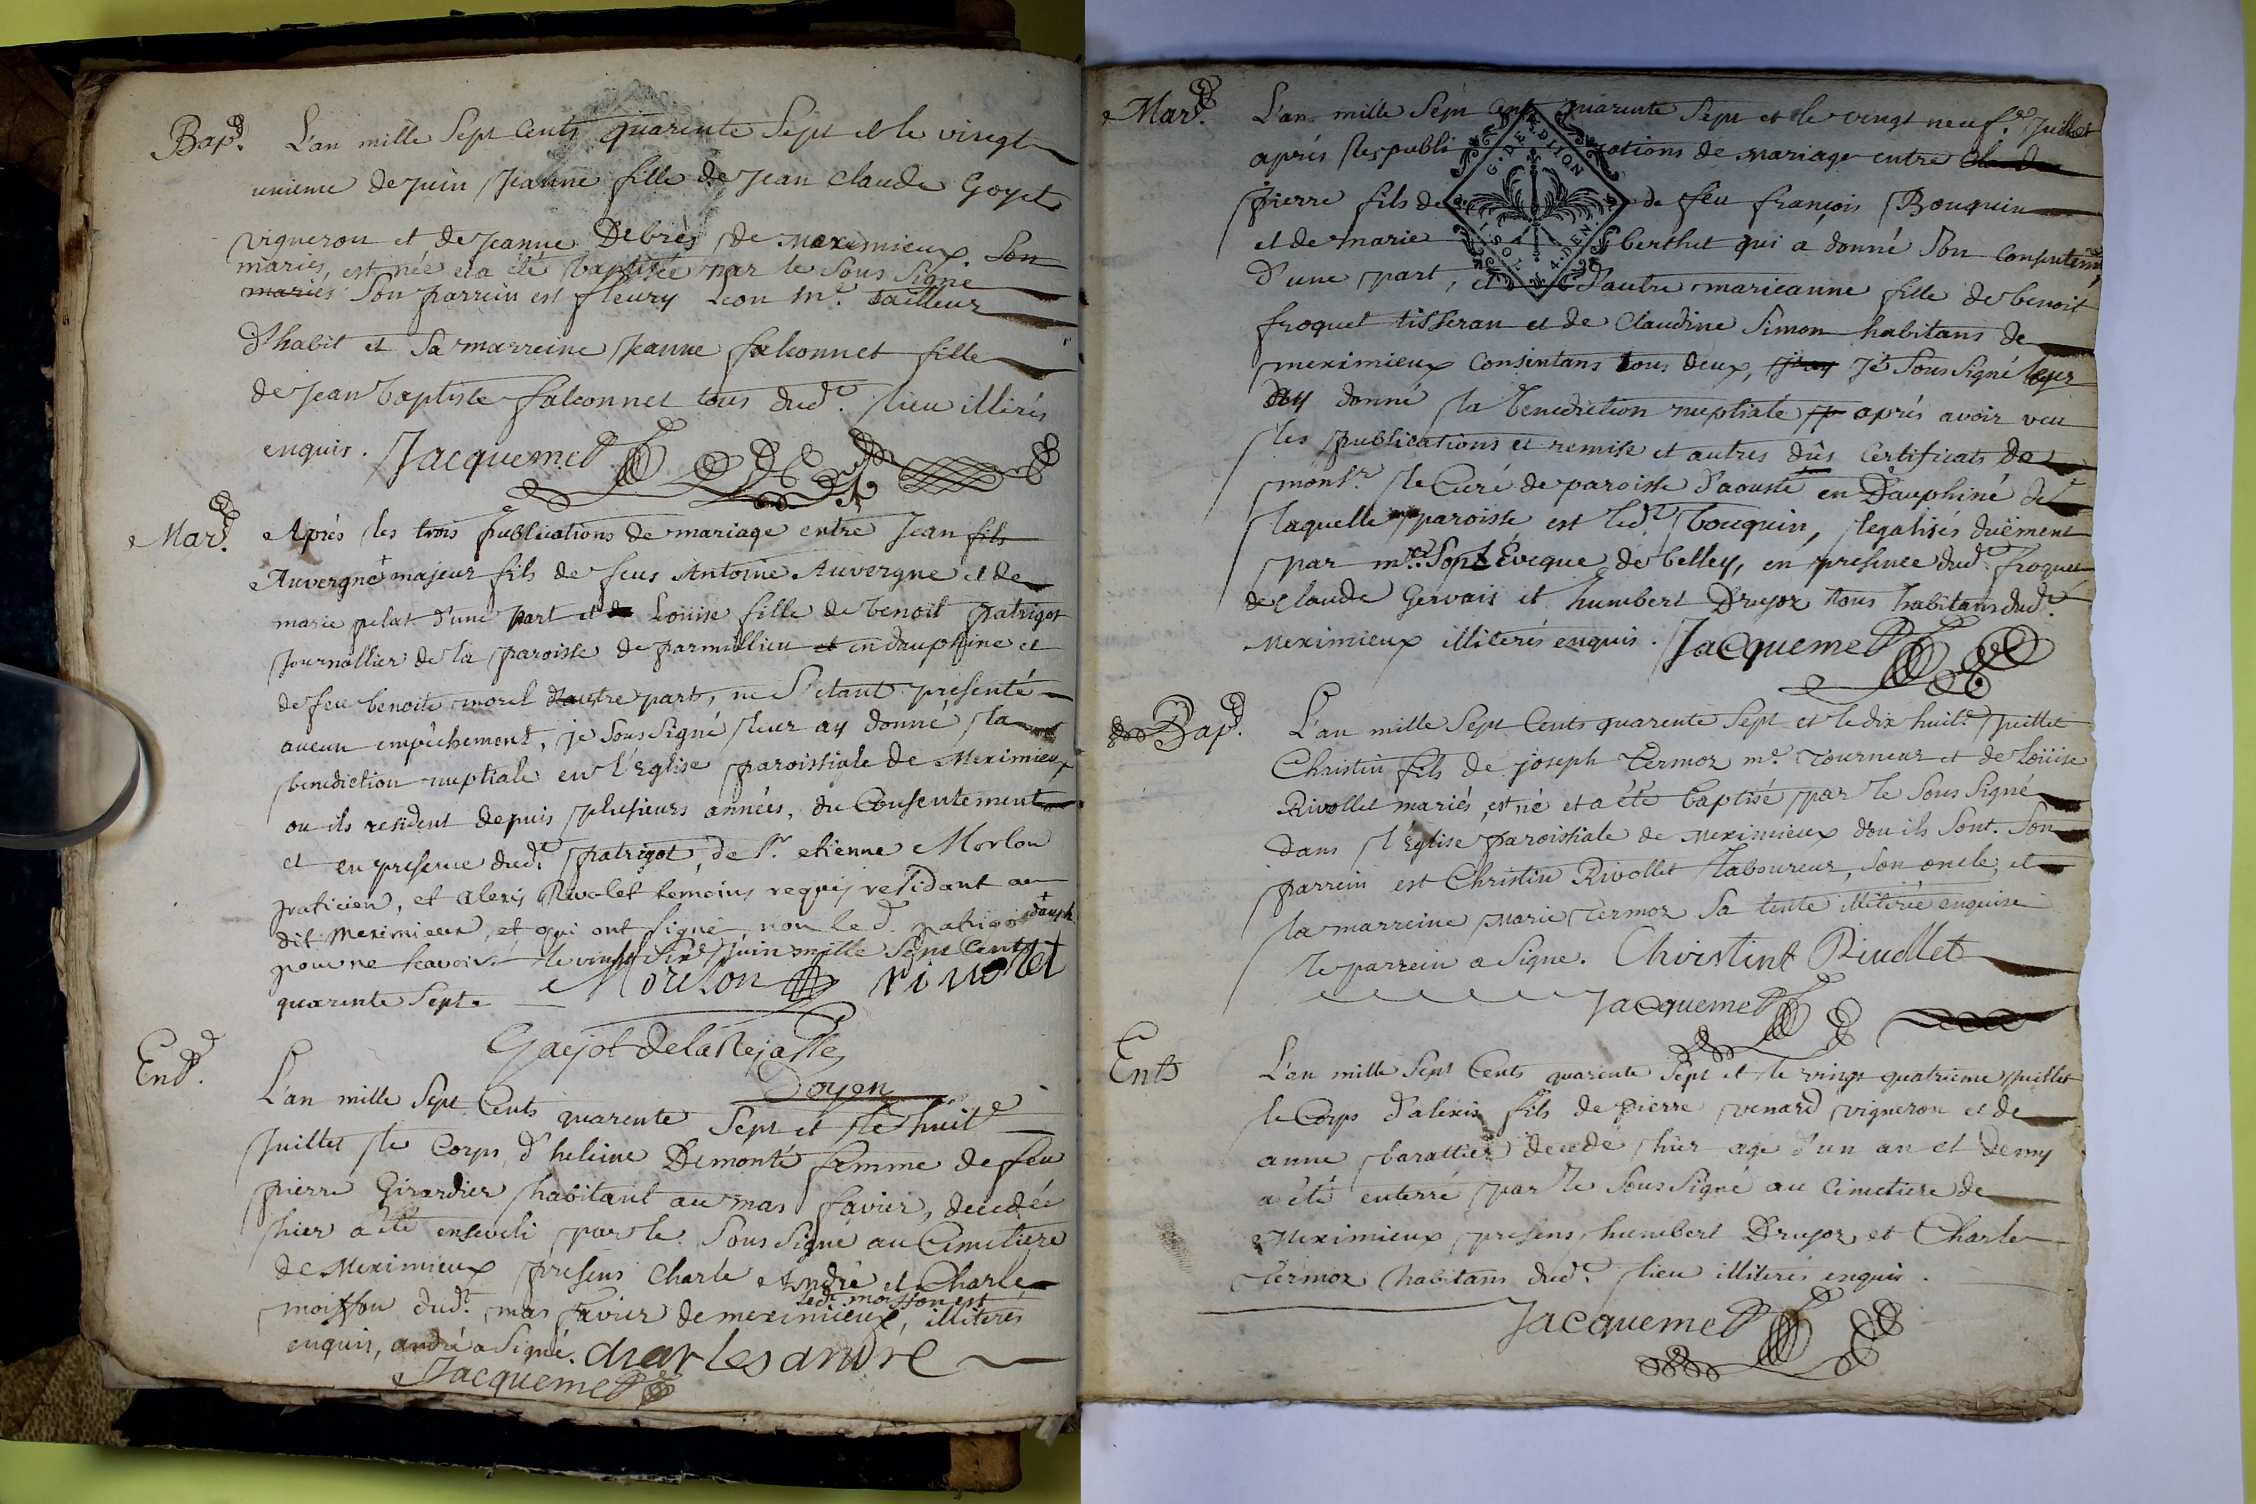 Bap.
L'an mille Sept Cents quarente Sept et le vinegt
unieme de juin Jeanne fille de Jean Claude Goyet
vigneron et de Jeanne Debrès de Meximieux. Son
mariés, est née et a été baptisée par le Sous Signe
mariés Son parrein est fleury Leon me. tailleur
d'habit et Sa marreine Jeanne falconnet fille
de Jean baptiste falconnet tous dudt. lieu illirés
enquis. Jacquemet
Mar.
Aprés les trois publications de mariage entre Jean fils
Auvergne + majeur fils de feus Antoine Auvergne et de
marie pelat d'une part et de Loüise fille de benoit patrigot
Journallier de la paroisse de parmillieu et en dauphine et
de feu benoite morel d'autre part, ne S'etant presenté
aucun empêchement, je Sous Signé leur ay donné la
benediction nuptiale en l'Eglise paroissiale de Meximieux
ou ils resident depuis plusieurs années, du Consentement
et en presence dudt. patrigot, de Sr. etienne Morlon
praticien, et alexis Rivolet temoins requis residant au
dit Meximieux, et qui ont signé, non le d. patrigot
pour ne scavoir. le vingt Six juin mille Sept Cents
quarente Sept. Morlon rivollet
Gayot Delarejasse
Doyen
Ent.
L'an mille Sept Cents quarente Sept et le huite
Juillet le Corps d'heleine Demonté femme de feu
pierre Girardier habitant au mas favier, decedée
hier a été enseveli par le Sous Signé au Cimetiere
de Meximieux presens Charle André et Charle
moisson dudt. mas favier de meximieux, illiterés
ledt moisson est
enquis, andré a Signé. charles andre
Jacquemet
Mar.
L'an mille Sept Cents quarente Sept et le vingt neufe. Juillet
aprés les publications de mariage entre
C. DE DIJON
pierre fils de de feu françois Bouquin
et de marie berthet qui a donné Son Consentemt
4. DEN.
D'une part, et d'autre marieanne fille de benoit
froquet tisseran et de Claudine Simon habitans de
meximieux Consentans tous deux, Je Sous Signé leur
ay donné la benediction nuptiale aprés avoir veu
les publications et remise et autres dûs Certificats de
monsr. le Curé de paroisse d'aouste en Dauphiné de
laquelle paroisse est ledt. bouquin, legalisés duëment
par mr. Evêque de belley, en presence dudt. froquet
de Claude Gervais et humbert Drujoz tous habitans dudt.
Meximieux illiterés enquis. Jacquemet
Bap.
L'an mille Sept Cents quarente Sept et le dix huite. Juillet
Christin fils de joseph Termoz me. Tourneur et de Loüise
Rivollet mariés, est né et a été baptisé par le Sous Signé
dans l'Eglise paroissiale de Meximieux d'ou ils Sont. Son
parrein est Christin Rivollet laboureur, Son oncle, et
la marreine Marie Termoz Sa tente illiterée enquise
le parrein a Signe. Christint Riuollet
Jacquemet
Ent
L'an mille Sept Cents quarente Sept et le vingt quatrieme Juillet
le Corps d'alexis fils de pierre venard vigneron et de
anne barattier decede hier age d'un an et demy
a été enterré par le Sous Signé au Cimetiere de
Meximieux presens humbert Drujoz et Charle
Termoz habitans dudt. lieu illiterés enquis.
Jacquemet